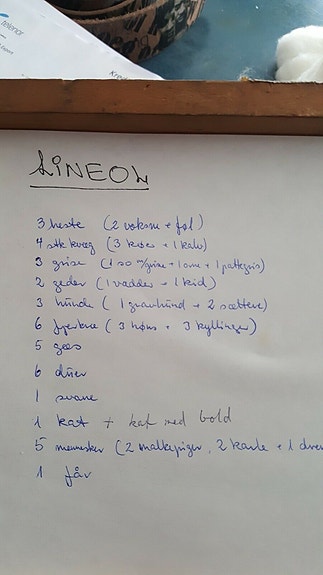 telenor
LINEOL
3 heste (2 voksne + føl)
4 stk kvæg (3 køer + 1 kalv)
3 grise (1 so m/grise + 1 orne + 1 pattegris)
2 geder (1 vædder + 1 kid)
3 hunde (1 gravhund + 2 sættere)
6 fjerkræ (3 høns + 3 kyllinger)
5 gæs
6 duer
1 svane
1 kat + kat med bold
5 mennesker (2 malkepiger, 2 karle + 1 dren
1 får